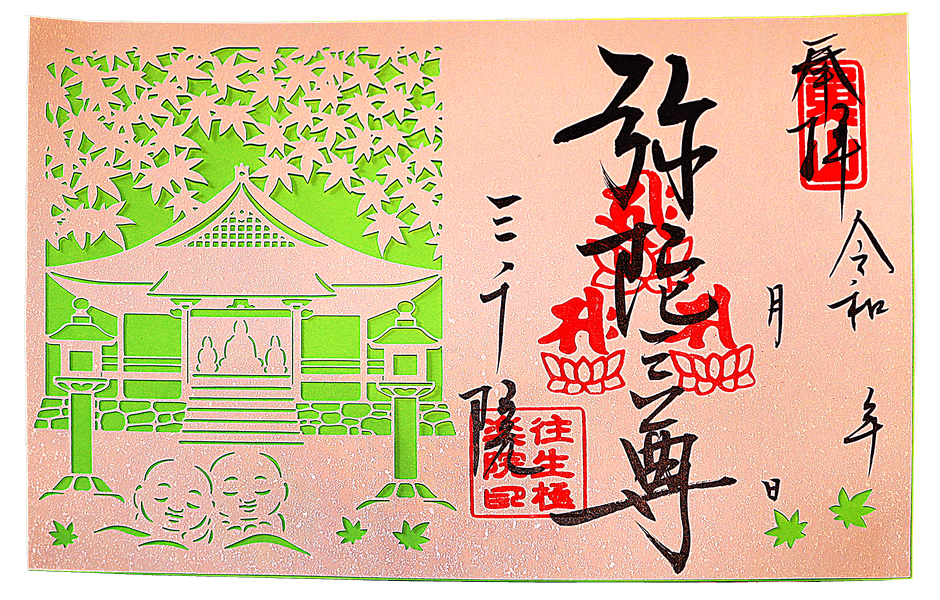 奉拝
令和 年
月 日
弥陀三尊
三千院
往生極
楽院印